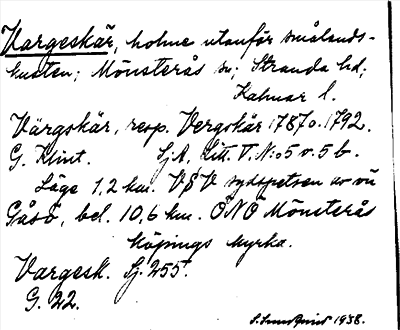 Vargeskär, holme utanför smålands-
kusten; Mönsterås sn; Stranda hd;
Kalmar l.
Värgskär, resp. Vergskär 1787 o. 1792.
G. Klint. Sj.A, Litt. V. N:o 5 o. 5 b.
Läge 1,2 km. VSV sydspetsen av
Gåsö, bel. 10,6 km. ÖNÖ Mönsterås
köpings kyrka.
Vargesk. Sj. 255.
G. 22.
S. Sundquist 1938.